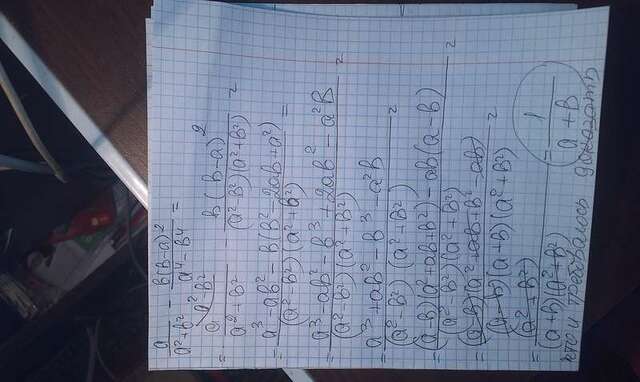 a/(a²+b²) - b(b-a)²/(a⁴-b⁴) =
= a^(a²-b²)/(a²+b²) - b(b-a)²/((a²-b²)(a²+b²)) =
= (a³-ab²-b(b²-2ab+a²))/((a²-b²)(a²+b²)) =
= (a³-ab²-b³+2ab²-a²b)/((a²-b²)(a²+b²)) =
= (a³+ab²-b³-a²b)/((a²-b²)(a²+b²)) =
= ((a-b)(a²+ab+b²)-ab(a-b))/((a²-b²)(a²+b²)) =
= (a-b)(a²+ab+b²-ab)/((a-b)(a+b)(a²+b²)) =
= (a²+b²)/((a+b)(a²+b²)) = 1/(a+b)
что и требовалось доказать